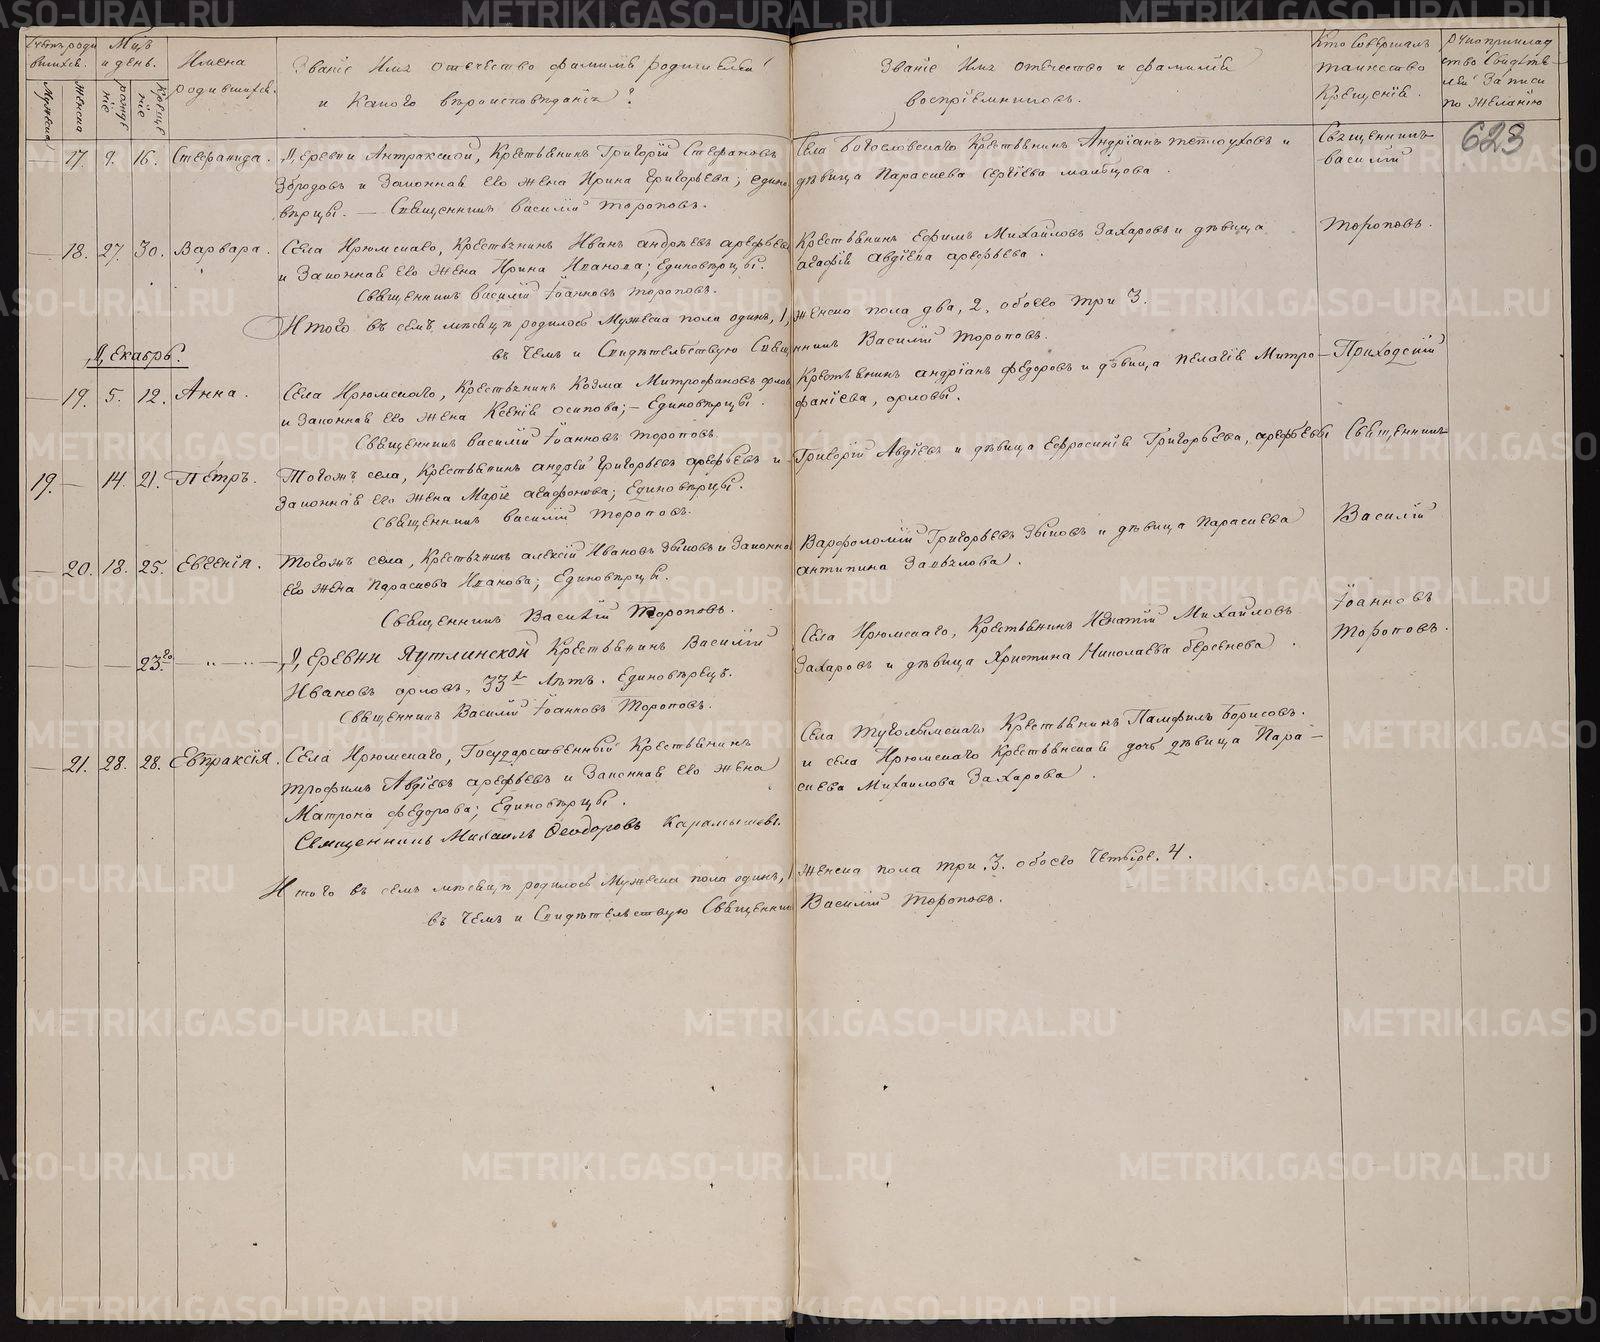 Счетъ роди
вшихся.
Мужеска
Женска
Мцъ
и день.
рожде
ніе
Креще
ніе
Имена
родившихся.
Званіе Имя отечество фамилія родителей
и Какого вѣроисповѣданія?
Званіе Имя отечество и фамилія
воспріемниковъ.
Кто совершалъ
таинство
Крещенія.
Рукоприклад
ство Свидѣте-
лей Записи
по желанію
623
— 17. 9. 16. Стефанида. Деревни Антраксной, Крестьянинъ Григорій Стефановъ
Збродовъ и Законная его жена Ирина Григорьева; едино
вѣрцы. — Священникъ Василій Тороповъ.
Села Богословскаго Крестьянинъ Андріанъ Петлоуховъ и
дѣвица Параскева Сергіева Мальцова.
Священникъ
Василій
Тороповъ.
— 18. 27. 30. Варвара. Села Ирюмскаго, Крестьянинъ Иванъ Андреевъ Арефьевъ
и Законная его жена Ирина Иванова; Единовѣрцы.
Священникъ Василій Іоанновъ Тороповъ.
Крестьянинъ Ефимъ Михайловъ Захаровъ и дѣвица
Агафія Авдіева Арефьева.
Итого въ семъ мѣсяцѣ родилось Мужеска пола одинъ, 1, женска пола два, 2, обоего три 3.
въ чемъ и Свидѣтельствую Священникъ Василій Тороповъ.
Декабрь.
— 19. 5. 12. Анна. Села Ирюмскаго, Крестьянинъ Козма Митрофановъ Орлов
и Законная его жена Ксенія Осипова; — Единовѣрцы.
Священникъ Василій Іоанновъ Тороповъ.
Крестьянинъ Андріанъ Федоровъ и дѣвица Пелагія Митро-
фаніева, Орловы.
Приходскій
19. — 14. 21. Петръ. Тогожъ села, Крестьянинъ Андрей Григорьевъ Арефьевъ и
Законная его жена Марія Агафонова; Единовѣрцы.
Священникъ Василій Тороповъ.
Григорій Авдіевъ и дѣвица Ефросинія Григорьева, Арефьевы
Священникъ
— 20. 18. 25. Евгенія. Тогожъ села, Крестьянинъ Алексій Ивановъ Зыковъ и Законна
его жена Параскева Иванова; Единовѣрцы.
Священникъ Василій Тороповъ.
Варфоломій Григорьевъ Зыковъ и дѣвица Параскева
Антипина Завьялова.
Василій
Іоанновъ
Тороповъ.
— — — 23.го — „ — Деревни Яутлинской Крестьянинъ Василій
Ивановъ Орловъ, 33х лѣтъ. Единовѣрецъ.
Священникъ Василій Іоанновъ Тороповъ.
Села Ирюмскаго, Крестьянинъ Игнатій Михайловъ
Захаровъ и дѣвица Христина Николаева Береснева.
— 21. 28. 28. Евпраксія. Села Ирюмскаго, Государственный Крестьянинъ
Трофимъ Авдіевъ Арефьевъ и Законная его жена
Матрона Федорова; Единовѣрцы.
Священникъ Михаилъ Феодоровъ Карамышевъ.
Села Туголымскаго Крестьянинъ Памфилъ Борисовъ.
и села Ирюмскаго Крестьянская дочь дѣвица Пара-
скева Михаилова Захарова.
Итого въ семъ мѣсяцѣ родилось Мужеска пола одинъ, 1 женска пола три. 3. обоего Четыре. 4.
въ чемъ и Свидѣтельствую Священник Василій Тороповъ.
METRIKI.GASO-URAL.RU